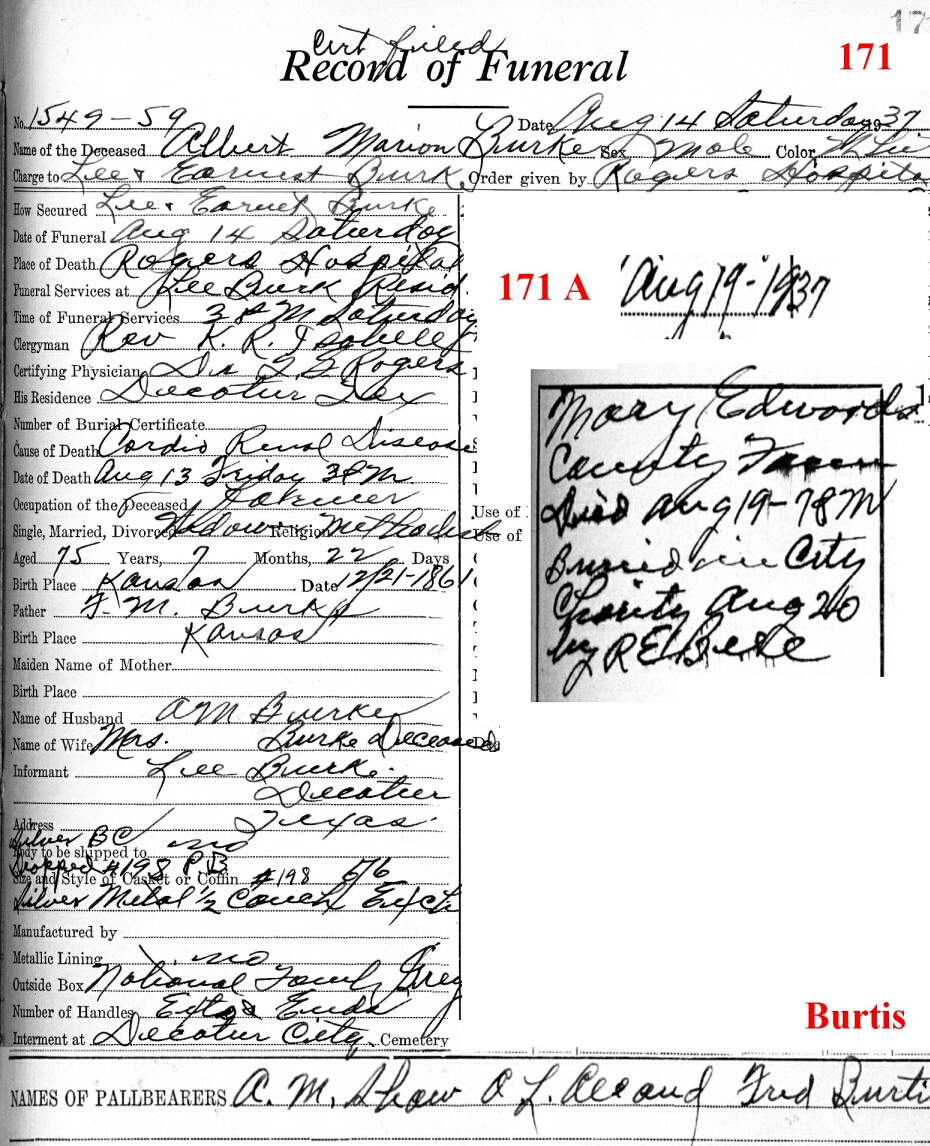 17
Cert filed
Record of Funeral
171
No. 1549-59 Date Aug 14 Saturday 1937
Name of the Deceased Albert Marion Burke Sex Male Color
Charge to Lee & Earnest Burk Order given by Rogers Hospital
How Secured Lee & Earnest Burke
Date of Funeral Aug 14 Saturday
Place of Death Rogers Hospital
Funeral Services at Lee Burk Resid.
Time of Funeral Services 3 PM Saturday
Clergyman Rev K. R. Isabell
Certifying Physician Dr Rogers
His Residence Decatur Tex
Number of Burial Certificate
Cause of Death Cardio Renal Disease
Date of Death Aug 13 Friday 3 PM
Occupation of the Deceased
Single, Married, Divorced Widower Religion Methodist
Aged 75 Years, 7 Months, 22 Days
Birth Place Kansas Date 12/21-1861
Father F. M. Burke
Birth Place Kansas
Maiden Name of Mother
Birth Place
Name of Husband A M Burke
Name of Wife Mrs. Burke Deceased
Informant Lee Burke.
Decatur
Address Texas.
Silver BC
Body to be shipped to no
#198 P B
Size and Style of Casket or Coffin #198 6/6
Silver Metal 1/2 Couch
Manufactured by
Metallic Lining no
Outside Box National Grey
Number of Handles Ext & Ends
Interment at Decatur City Cemetery
171 A
Aug 19-1937
Mary Edwards
County Farm
Died Aug 19-78M
Buried in City
Charity Aug 20
by R E Beck
Use of
Use of
Burtis
NAMES OF PALLBEARERS A. M. Shaw O L Fred Burti